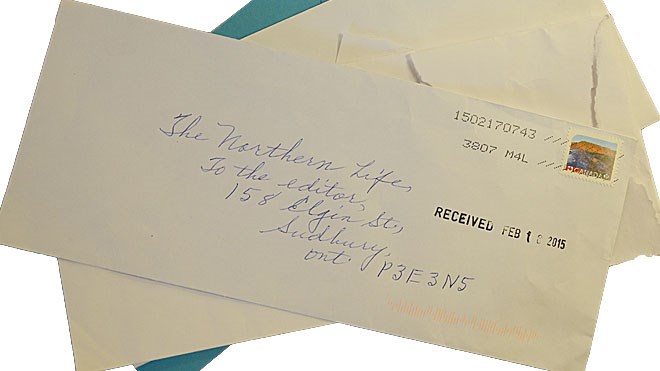 The Northern Life,
To the editor,
158 Elgin St.,
Sudbury,
Ont. P3E3N5
1502170743
3807 M4L
CANADA
RECEIVED FEB 1 2015